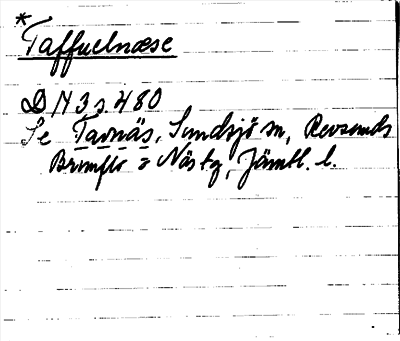 *Taffuelnæse
DN 3 s. 480
Se Tavnäs, Sundsjö sn, Revsunds
Brunflo o Näs tg, Jämtl. l.